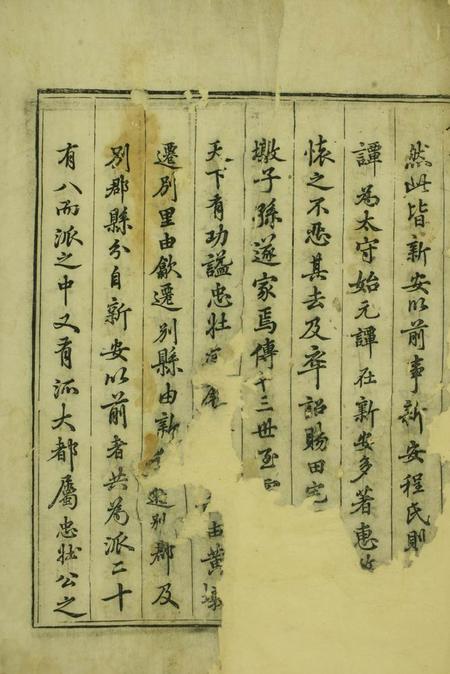 然此皆新安以前事新安程氏則
譚為太守始元譚在新安多著惠
懷之不忍其去及卒詔賜田宅
墩子孫遂家焉傳十三世至
天下有功謚忠壯 由黃墩
遷別里由歙遷別縣由新安遷別郡及
別郡縣分自新安以前者共為派二十
有八而派之中又有派大都屬忠壯公之